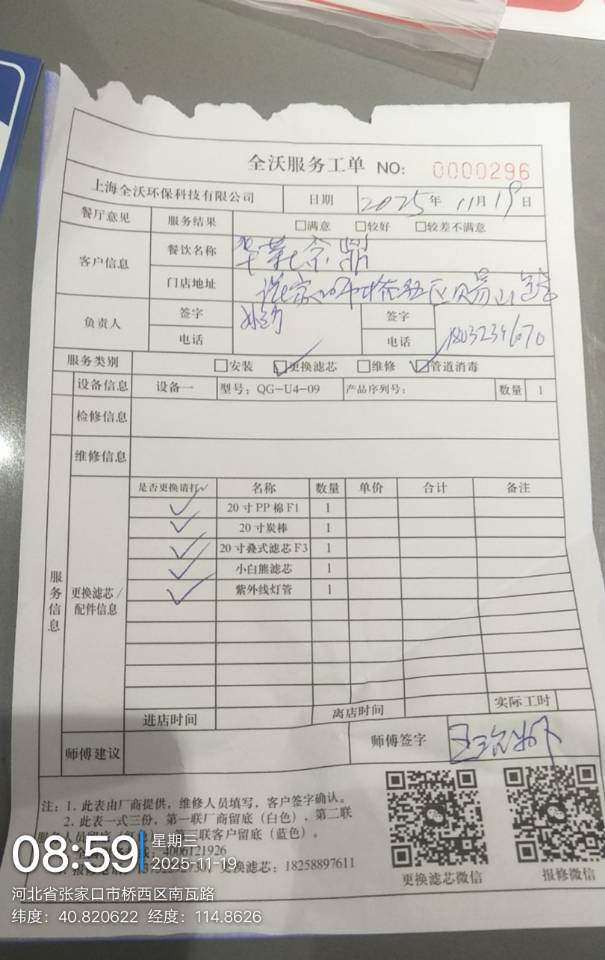 全沃服务工单 NO: 0000296
上海全沃环保科技有限公司 日期 2025年 11月19日
餐厅意见 服务结果 □满意 □较好 □较差不满意
客户信息 餐饮名称
门店地址
负责人 签字 签字
电话 电话
服务类别 □安装 ☑更换滤芯 □维修 ☑管道消毒
设备信息 设备一 型号: QG-U4-09 产品序列号: 数量 1
检修信息
维修信息
服务信息
更换滤芯/配件信息
是否更换请打✓ 名称 数量 单价 合计 备注
✓ 20寸PP棉F1 1
✓ 20寸炭棒 1
✓ 20寸叠式滤芯F3 1
✓ 小白熊滤芯 1
✓ 紫外线灯管 1
实际工时
进店时间 离店时间
师傅建议 师傅签字
注: 1. 此表由厂商提供，维修人员填写，客户签字确认。
2. 此表一式三份，第一联厂商留底（白色），第二联
联客户留底（蓝色）。
4006121926
更换滤芯: 18258897611
更换滤芯微信 报修微信
08:59 星期三
2025-11-19
河北省张家口市桥西区南瓦路
纬度: 40.820622 经度: 114.8626